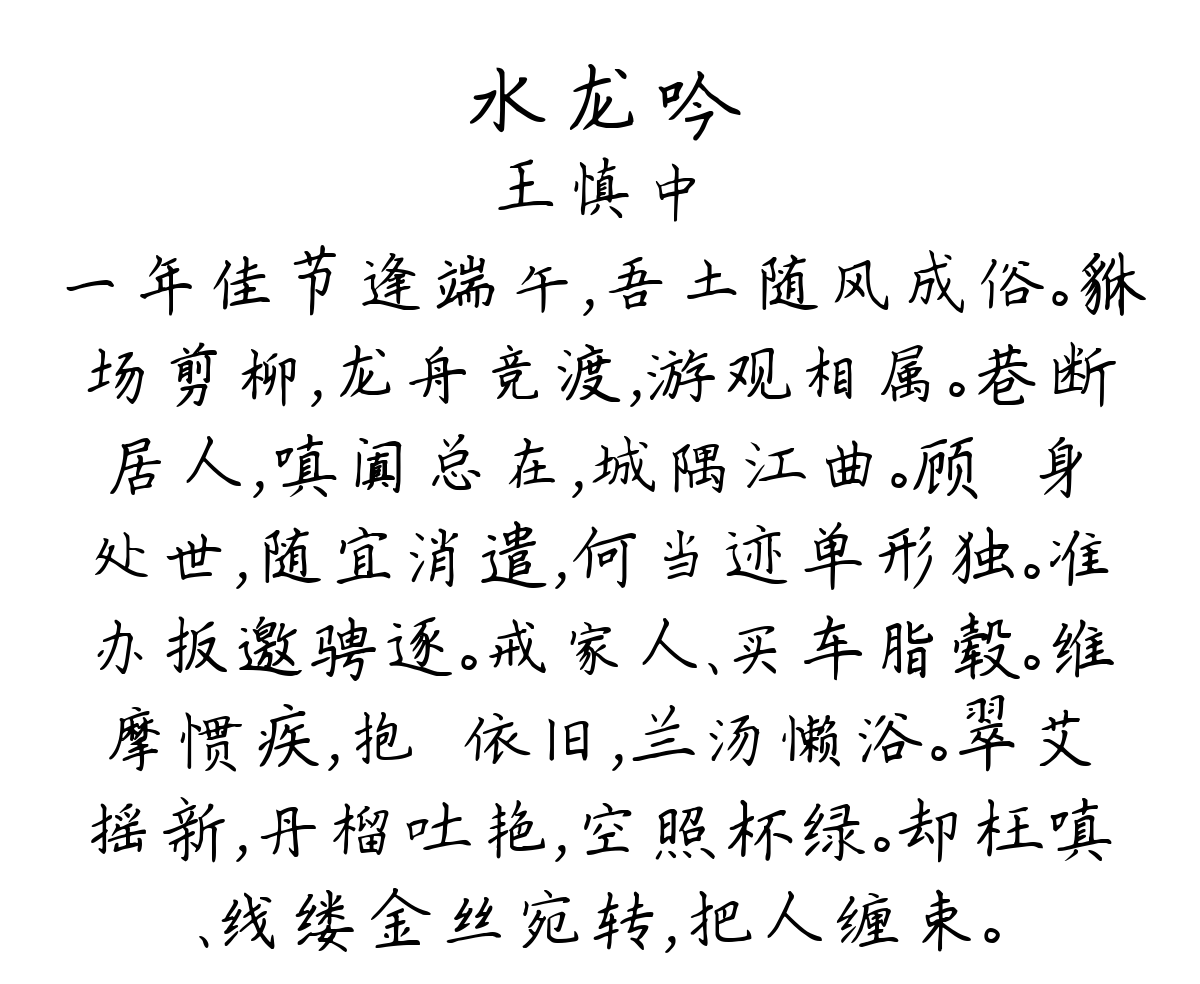 水龙吟
王慎中
一年佳节逢端午,吾土随风成俗。貅
场剪柳,龙舟竞渡,游观相属。巷断
居人,嗔阗总在,城隅江曲。顾 身
处世,随宜消遣,何当迹单形独。准
办扳邀骋逐。戒家人、买车脂毂。维
摩惯疾,抱 依旧,兰汤懒浴。翠艾
摇新,丹榴吐艳,空照杯绿。却枉嗔
、线缕金丝宛转,把人缠束。